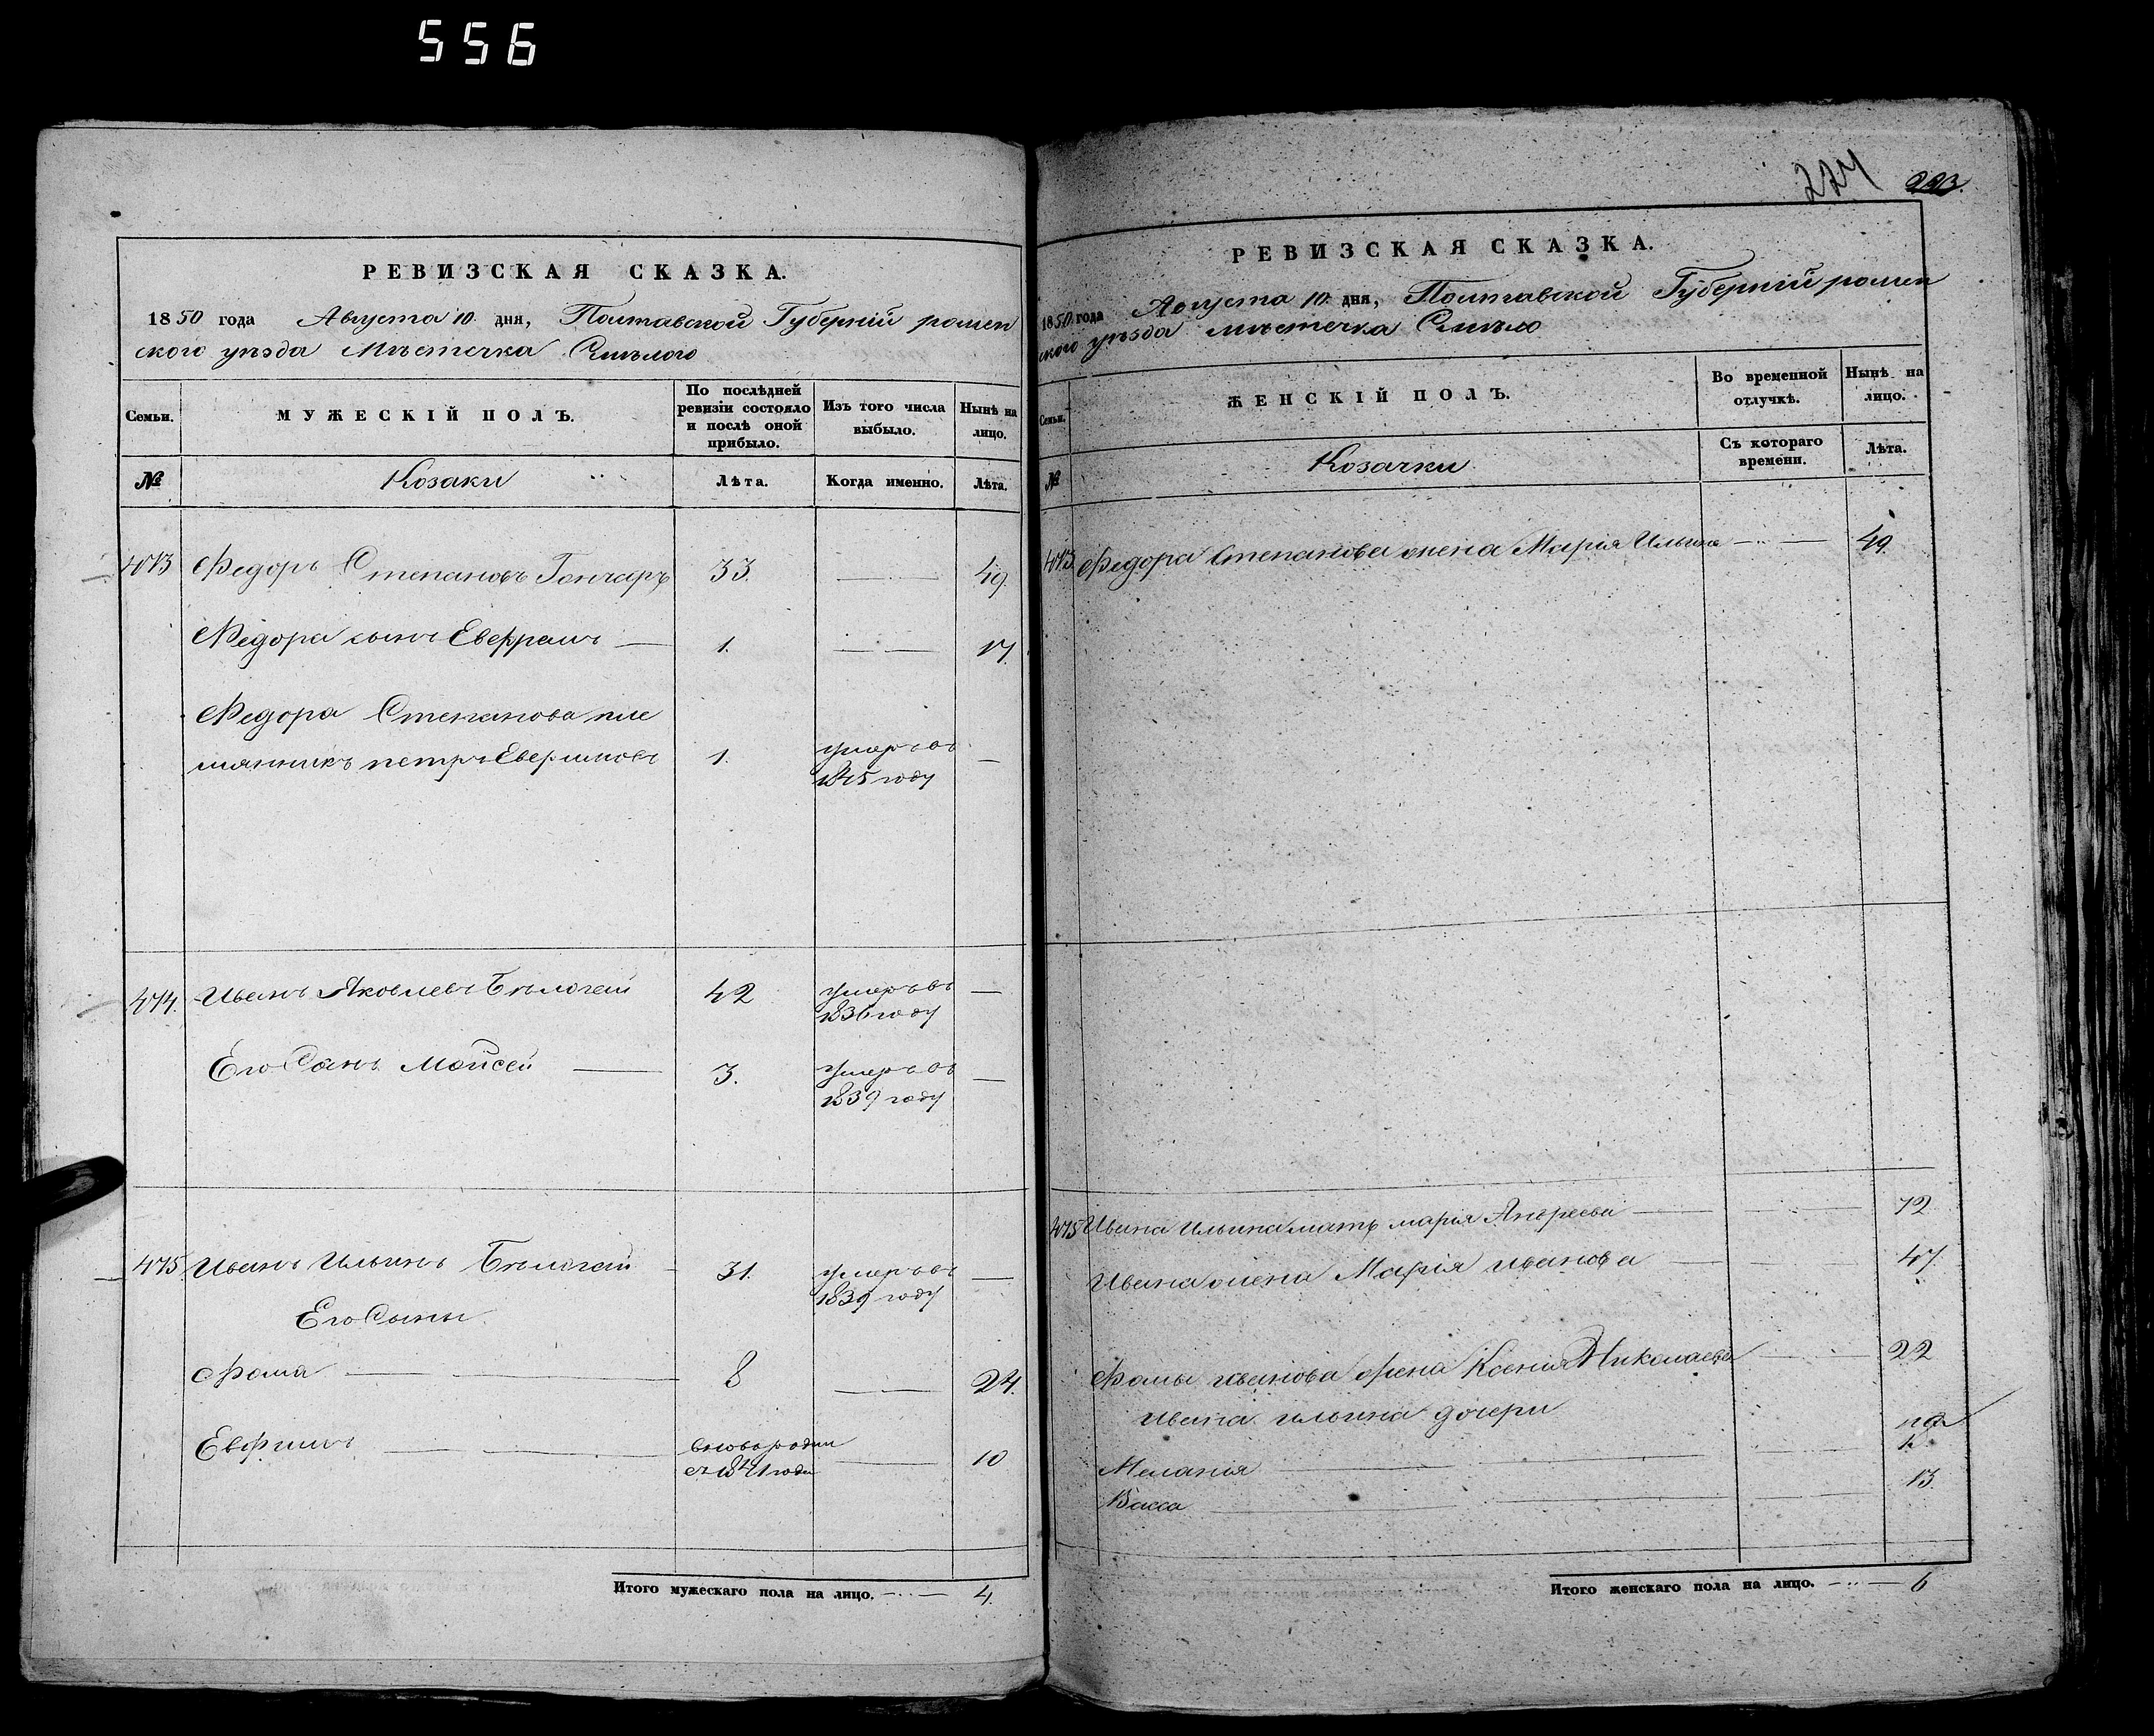 556
РЕВИЗСКАЯ СКАЗКА.
1850 года Августа 10 дня, Полтавской Губерніи ромен
ского уѣзда Мѣстечка Смѣлого
Семьи.
МУЖЕСКІЙ ПОЛЪ.
По послѣдней ревизіи состояло и послѣ оной прибыло.
Изъ того числа выбыло.
Нынѣ на лицо.
№
Козаки
Лѣта.
Когда именно.
Лѣта.
473 Федоръ Степановъ Гончаръ 33. 49.
Федора сынъ Евфраимъ 1. 17.
Федора Степанова пле
мянникъ петръ 1. умеръ въ
1845 году
474. Иванъ Яковлевъ Бѣлогай 42 умеръ въ
1836 году
Его Сынъ Мойсей 3. умеръ въ
1839 году
475 Иванъ Ильинъ Бѣлогай 31. умеръ въ
1839 году
Его Сыны
Фома 8 24.
Евфимъ 10
Итого мужескаго пола на лицо. 4.
224 223.
РЕВИЗСКАЯ СКАЗКА.
1850 года Августа 10 дня, Полтавской Губерніи ромен
ского уѣзда мѣстечка Смѣло
Семьи.
ЖЕНСКІЙ ПОЛЪ.
Во временной отлучкѣ.
Нынѣ на лицо.
№
Козачки
Съ котораго времени.
Лѣта.
473 Федора Степанова жена Марія Ильина 49.
475 Ивана Ильина мать марія Андреева 72
Ивана жена Марія иванова 47.
Фомы иванова жена Ксенія Николаева 22
Ивана ильина дочери
Меланія
Васса 13.
Итого женскаго пола на лицо. 6